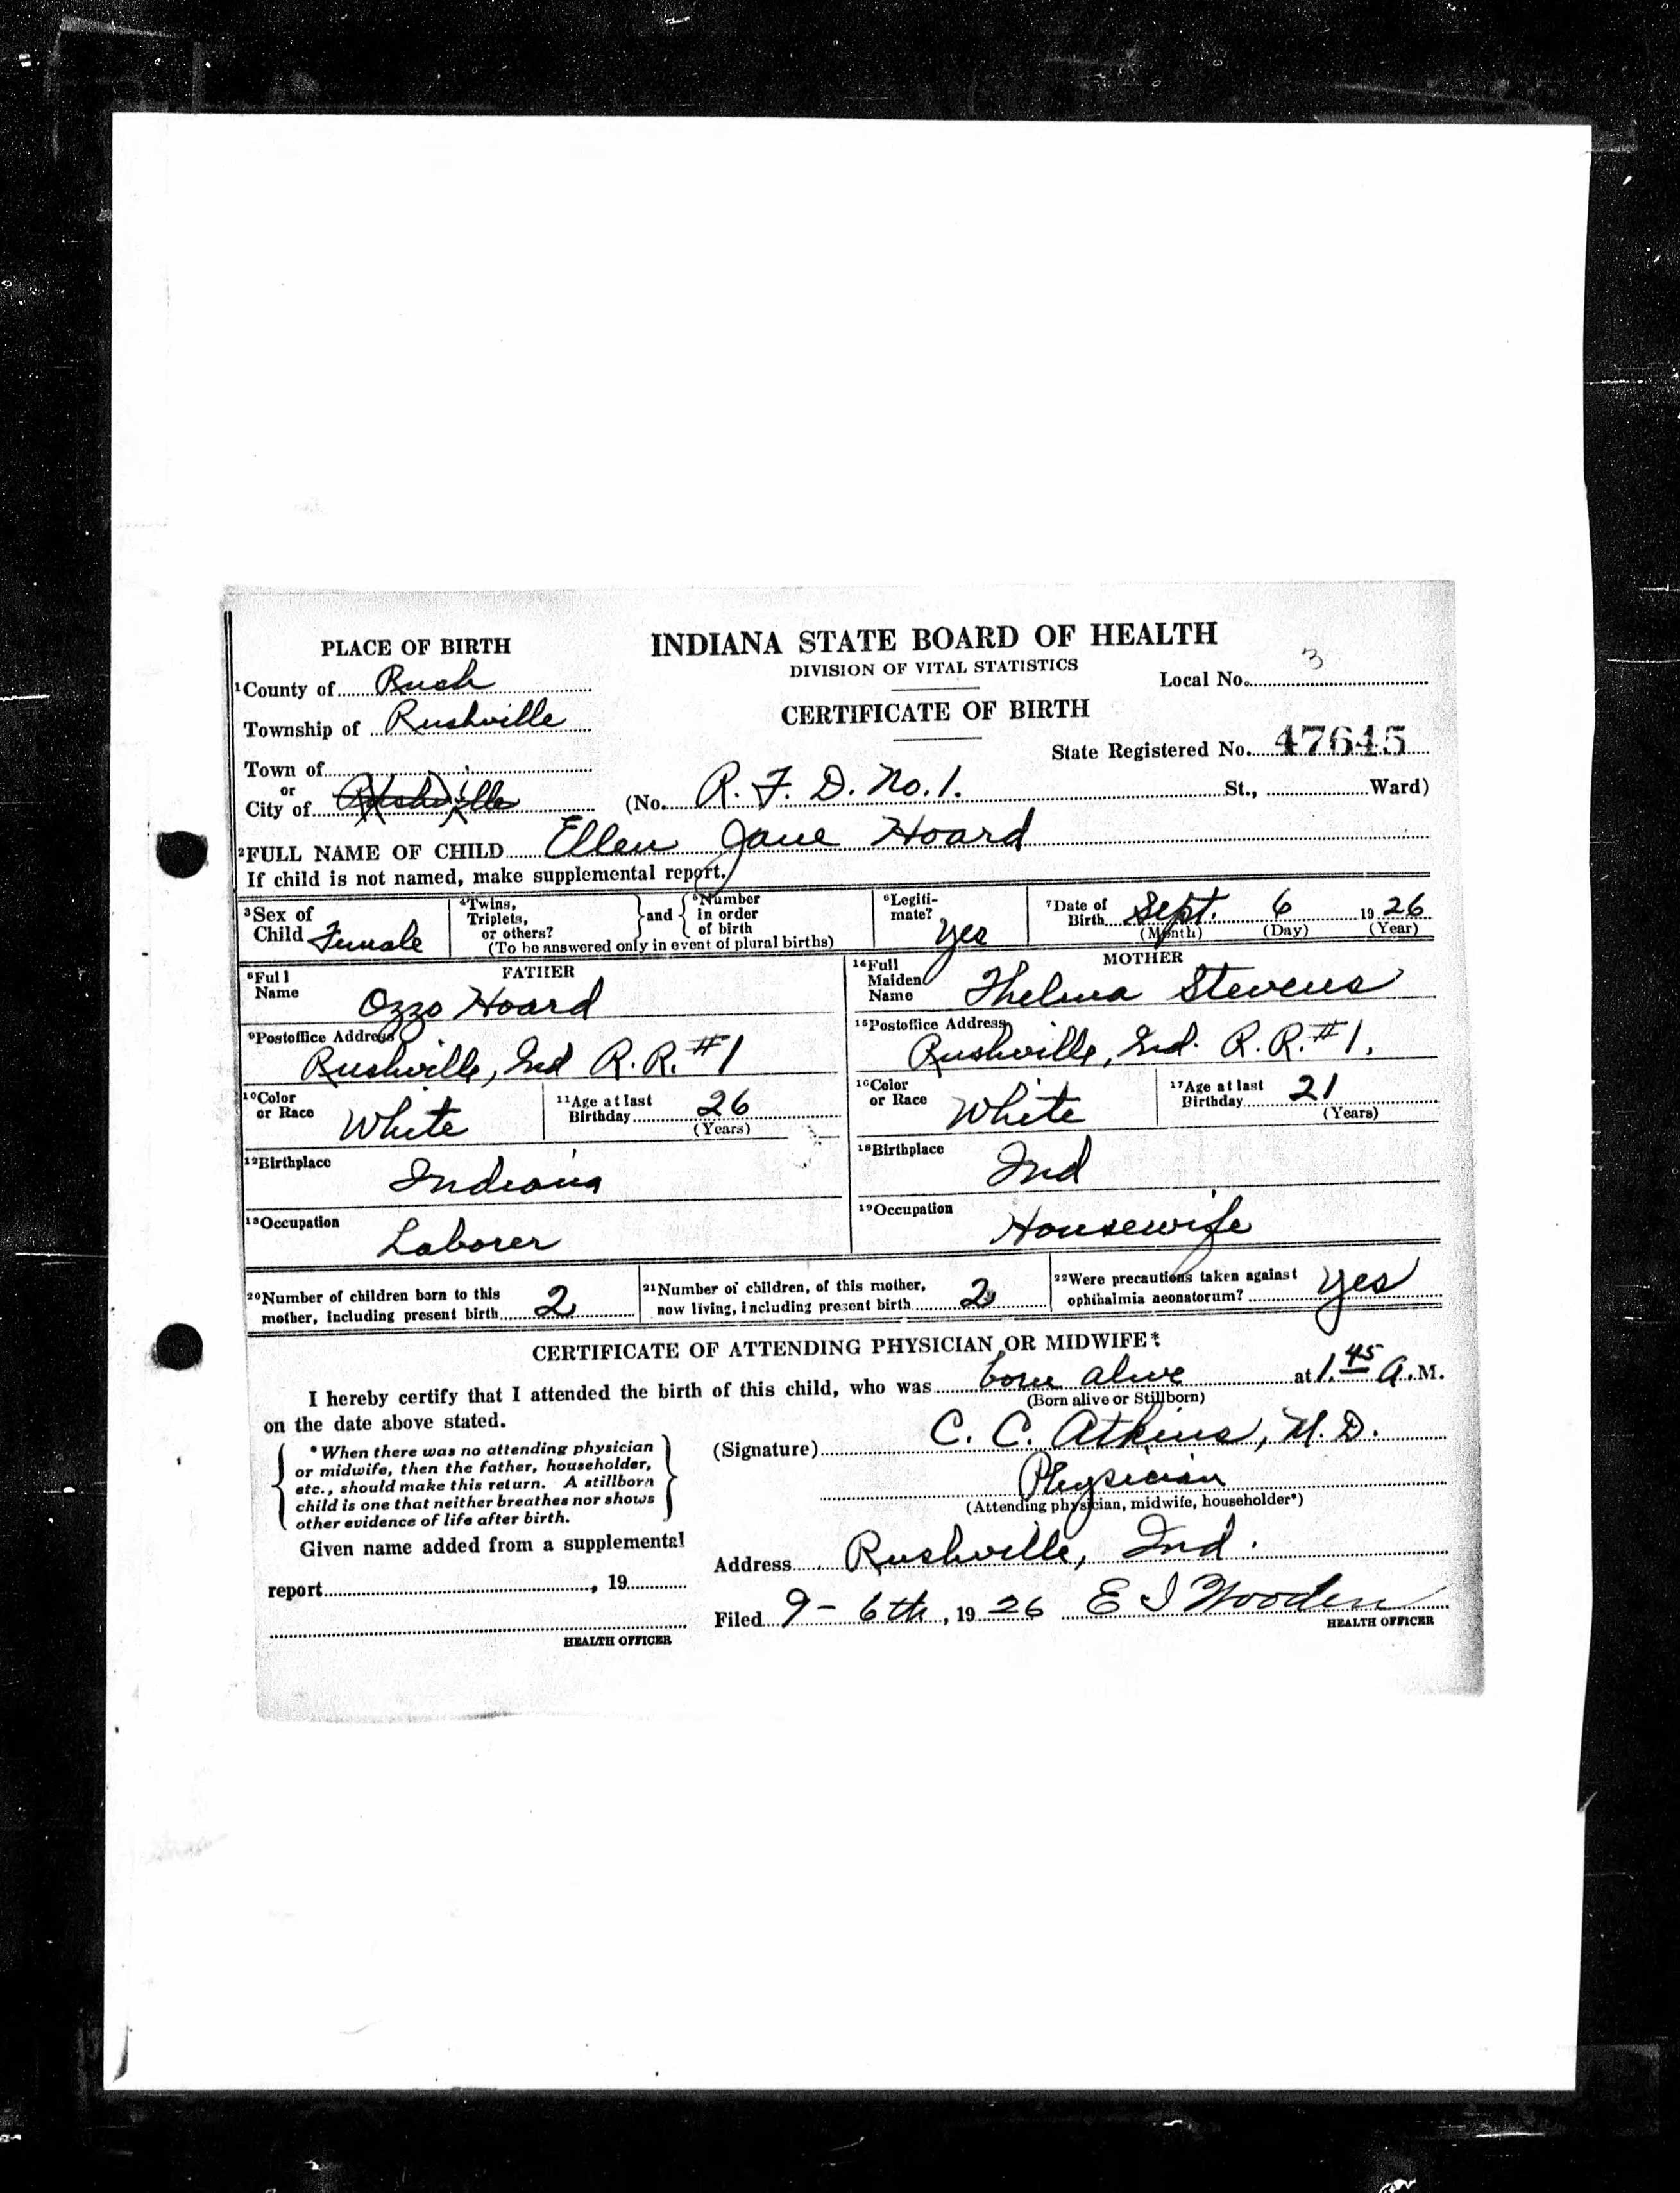 PLACE OF BIRTH
INDIANA STATE BOARD OF HEALTH
DIVISION OF VITAL STATISTICS
CERTIFICATE OF BIRTH
Local No. 3
State Registered No. 47645
1 County of Rush
Township of Rushville
Town of
or
City of Rushville
(No. R. F. D. No. 1. St., Ward)
2 FULL NAME OF CHILD Ellen Jane Hoard
If child is not named, make supplemental report.
3 Sex of Child Female
4 Twins, Triplets, or others? } and { 5 Number in order of birth
(To be answered only in event of plural births)
6 Legiti-mate? Yes
7 Date of Birth Sept. 6 1926
(Month) (Day) (Year)
FATHER
8 Full Name Ozzo Hoard
9 Postoffice Address
Rushville, Ind R.R. #1
10 Color or Race White
11 Age at last Birthday 26
(Years)
12 Birthplace Indiana
13 Occupation Laborer
MOTHER
14 Full Maiden Name Thelma Stevens
15 Postoffice Address
Rushville, Ind. R.R. #1.
16 Color or Race White
17 Age at last Birthday 21
(Years)
18 Birthplace Ind
19 Occupation Housewife
20 Number of children born to this mother, including present birth 2
21 Number of children, of this mother, now living, including present birth 2
22 Were precautions taken against ophthalmia neonatorum? Yes
CERTIFICATE OF ATTENDING PHYSICIAN OR MIDWIFE*
I hereby certify that I attended the birth of this child, who was born alive at 1.45 A. M.
(Born alive or Stillborn)
on the date above stated.
* When there was no attending physician
or midwife, then the father, householder,
etc., should make this return. A stillborn
child is one that neither breathes nor shows
other evidence of life after birth.
(Signature) C. C. Atkins, M. D.
Physician
(Attending physician, midwife, householder*)
Given name added from a supplemental
report , 19
HEALTH OFFICER
Address Rushville, Ind.
Filed 9-6th, 1926 E I Wooden
HEALTH OFFICER